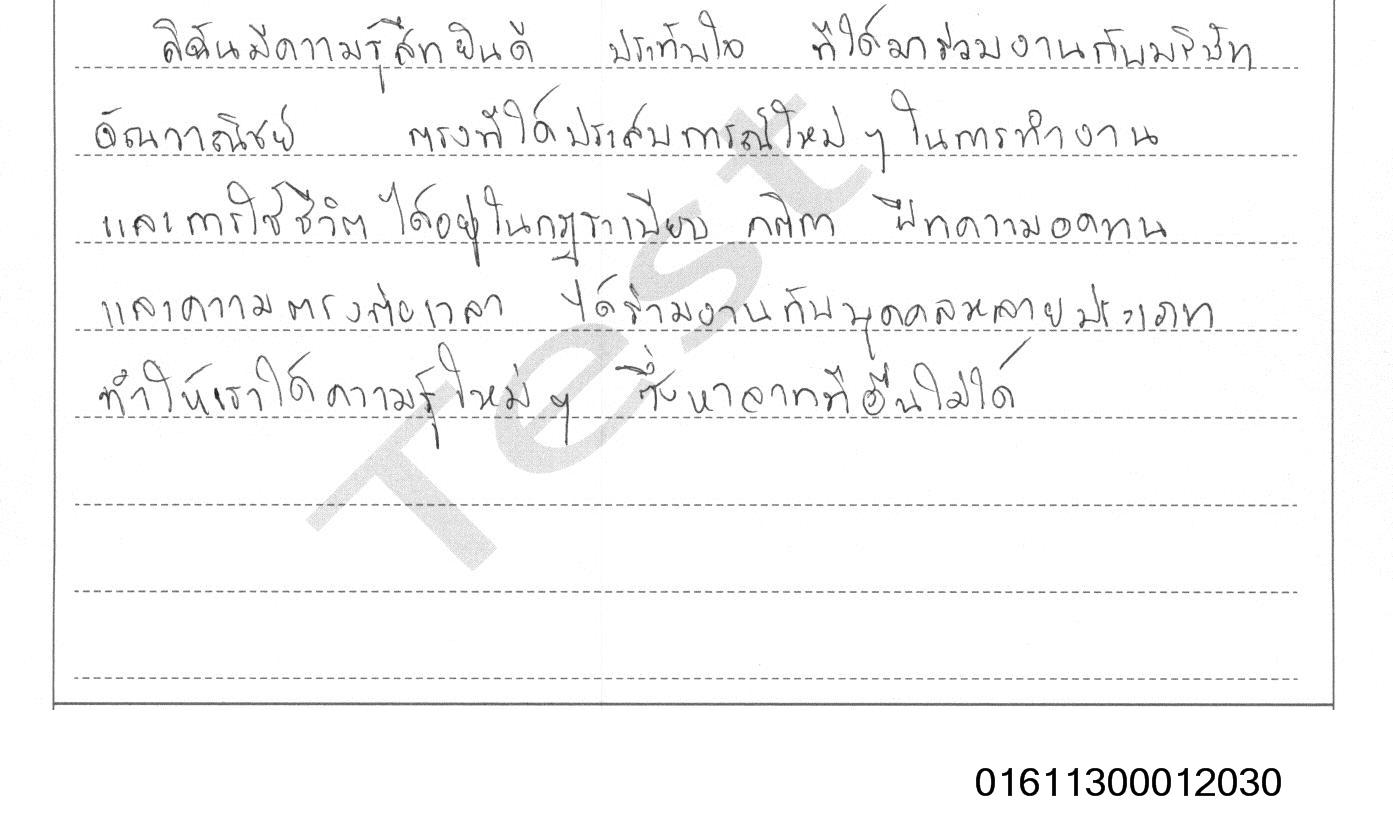 ดิฉันมีความรู้สึกยินดี ประทับใจ ที่ได้มาร่วมงานกับบริษัท
อัณวาณิชย์ ตรงที่ได้ประสบการณ์ใหม่ ๆ ในการทำงาน
และการใช้ชีวิต ได้อยู่ในกฎระเบียบ กติกา ฝึกความอดทน
และความตรงต่อเวลา ได้ร่วมงานกับบุคคลหลายประเภท
ทำให้เราได้ความรู้ใหม่ ๆ ซึ่งหาจากที่อื่นไม่ได้
Test
01611300012030